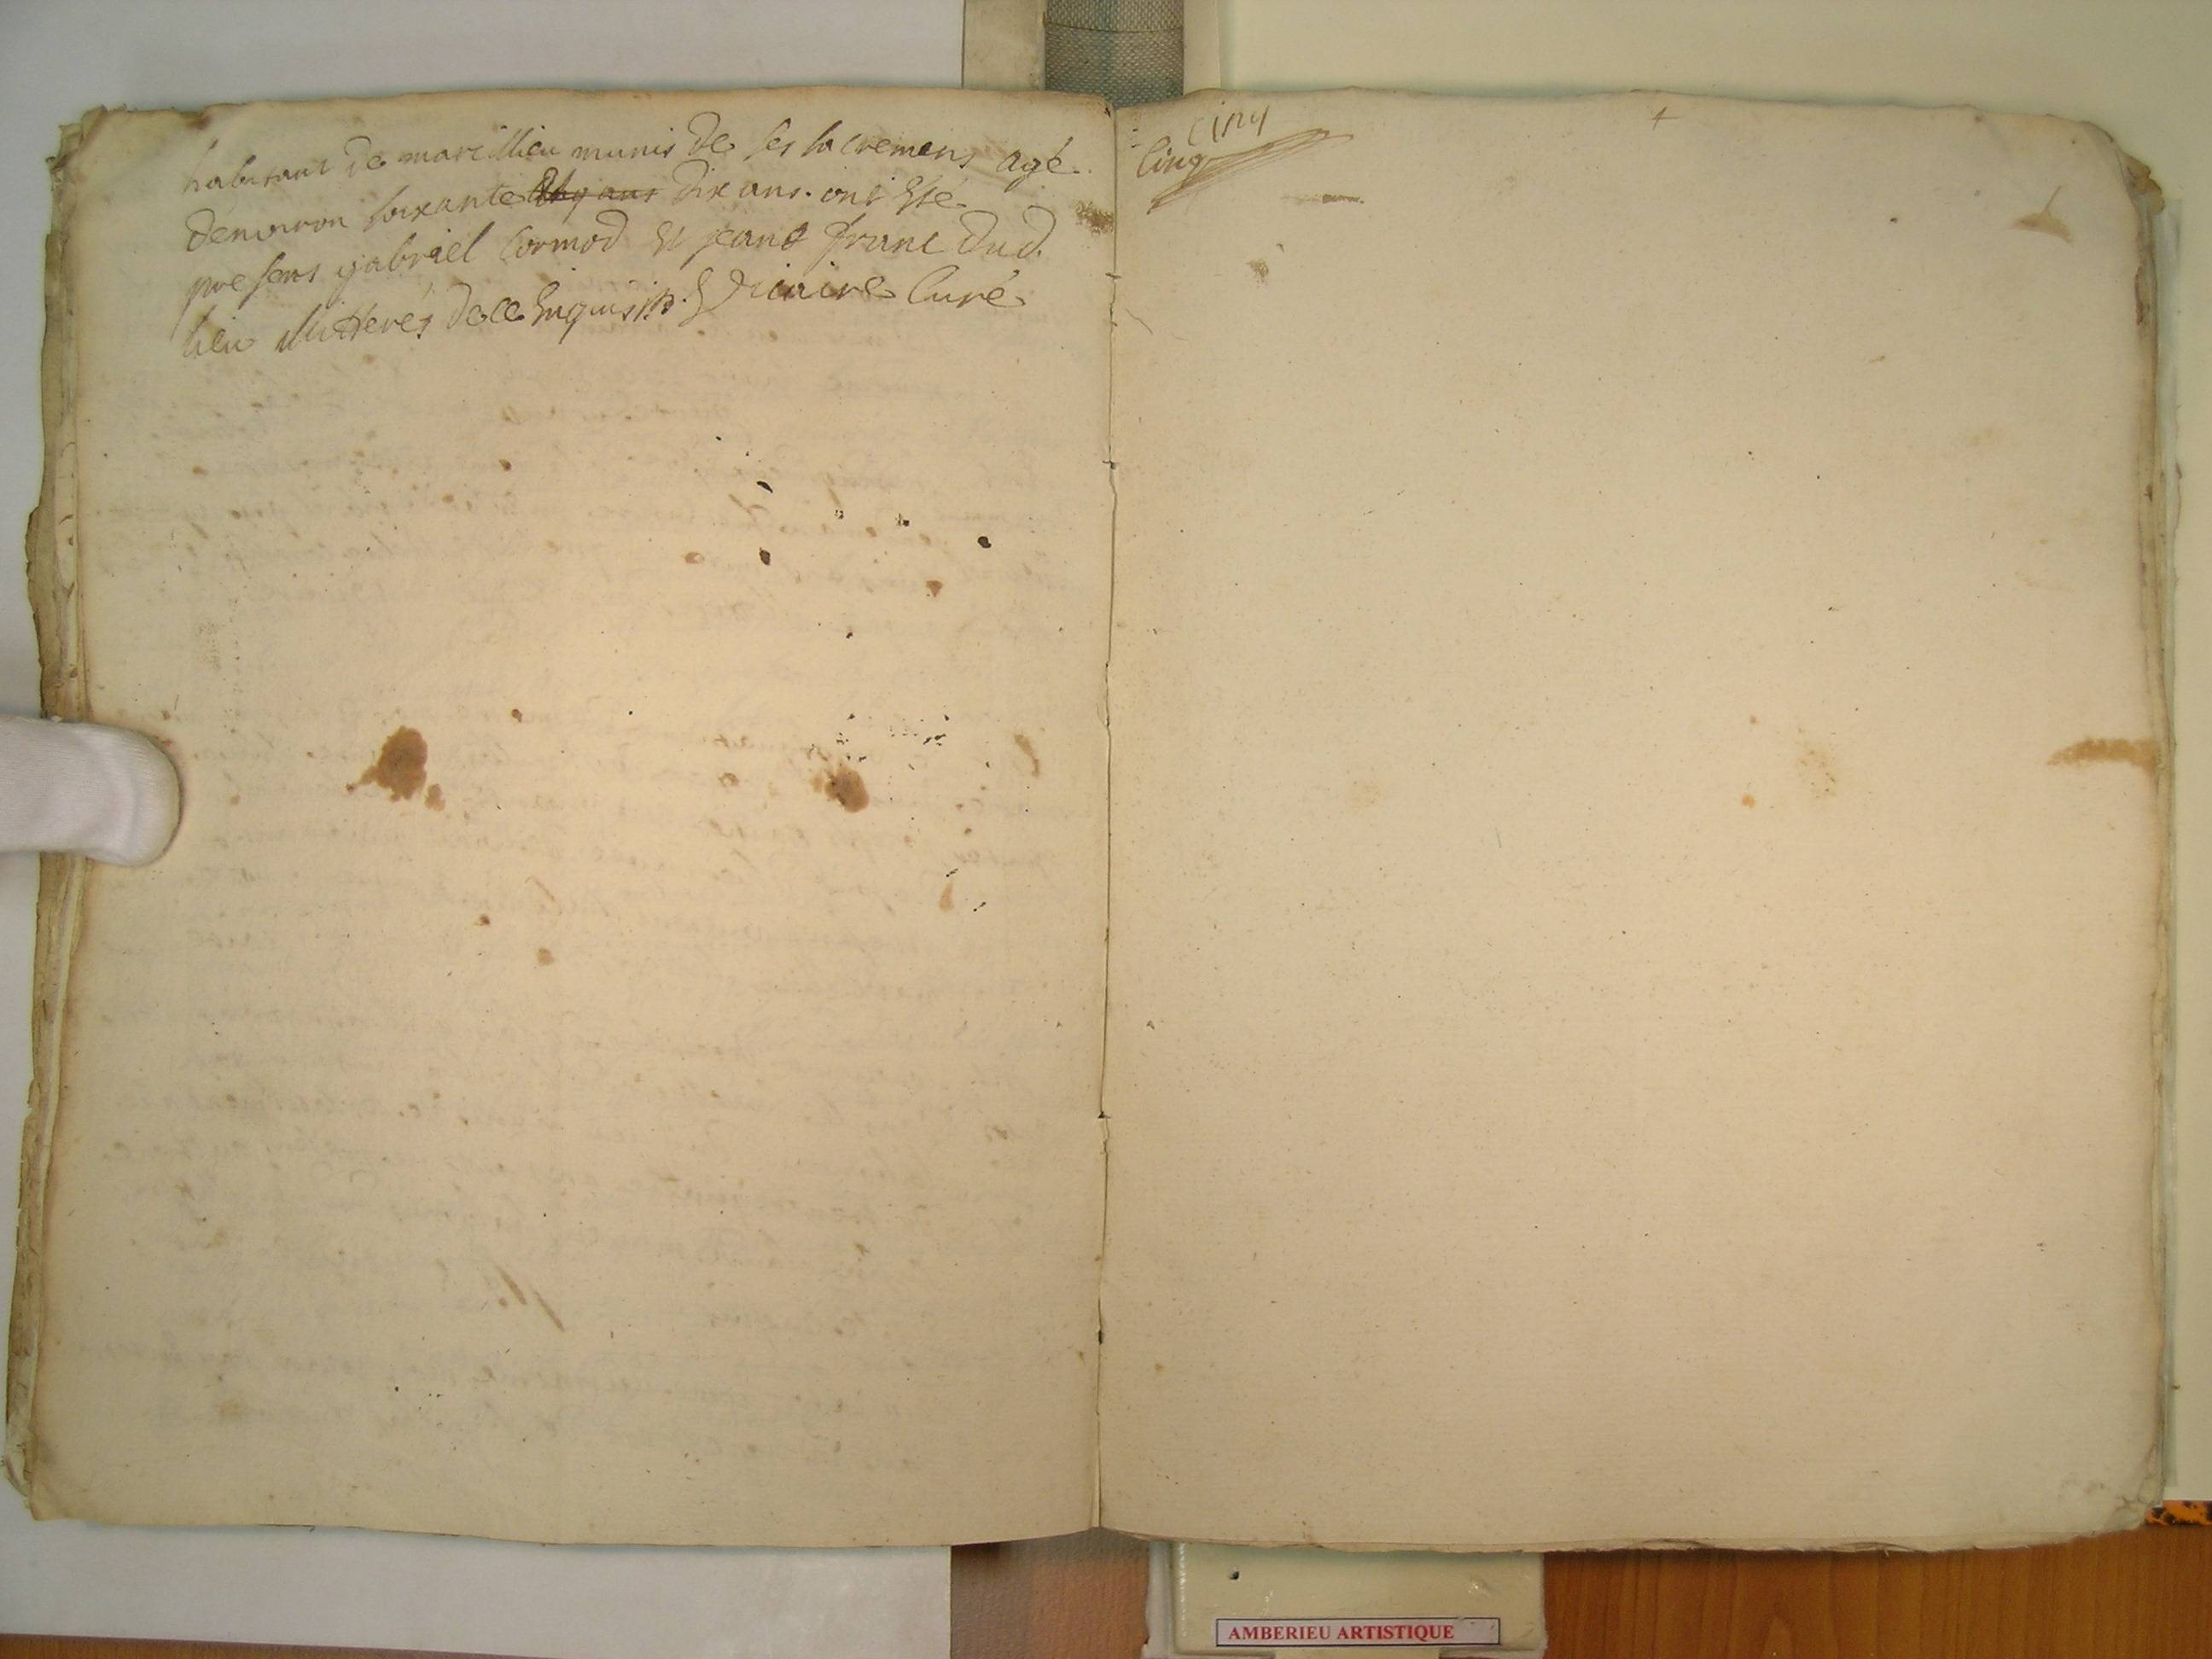 habitant de marcillieu munis de ses sacremens agé
d'environ soixante cinq ans dix ans. ont esté
presens gabriel Cormod et jeant franc dud.
lieu illitterés de ce Enquis
Curé
cinq
Cinq
AMBERIEU ARTISTIQUE